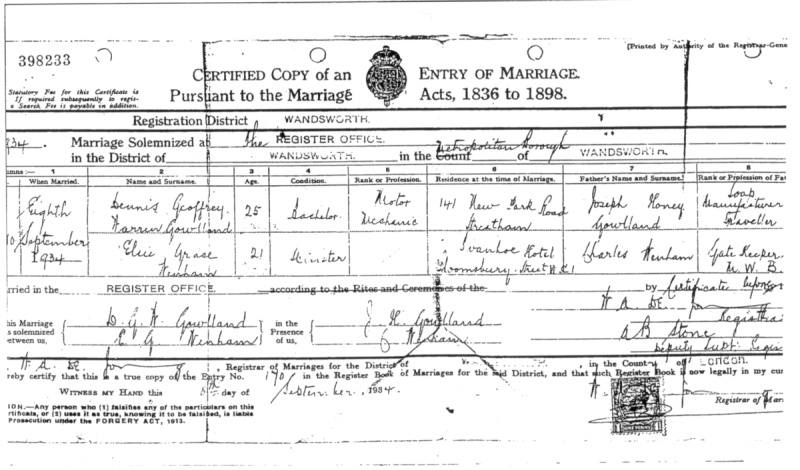 398233
[Printed by Authority of the Registrar-Gene
Statutory Fee for this Certificate is
If required subsequently to regis-
a Search Fee is payable in addition.
CERTIFIED COPY OF AN ENTRY OF MARRIAGE.
Pursuant to the Marriage Acts, 1836 to 1898.
Registration District WANDSWORTH.
934. Marriage Solemnized at the REGISTER OFFICE.
in the District of WANDSWORTH. in the Metropolitan Borough County of WANDSWORTH.
umns:— 1 2 3 4 5 6 7 8
When Married. Name and Surname. Age. Condition. Rank or Profession. Residence at the time of Marriage. Father's Name and Surname. Rank or Profession of Fat
Eighth September 1934
Dennis Geoffrey Warrin Gowlland 25 Bachelor Motor Mechanic 141 New Park Road Streatham Joseph Honey Gowlland Soap Manufacturer Traveller
Elsie Grace Wenham 21 Spinster Ivanhoe Hotel Bloomsbury Street W.C.1 Charles Wenham Gate Keeper M.W.B.
rried in the REGISTER OFFICE. according to the Rites and Ceremonies of the by Certificate
Registrar
his Marriage
s solemnized
etween us,
D. G. W. Gowlland
E. G. Wenham
in the
Presence
of us,
Gowlland
A B Stone
Deputy Supt. Regis
Registrar of Marriages for the District of in the County of London.
reby certify that this is a true copy of the Entry No. 190 in the Register Book of Marriages for the said District, and that such Register Book is now legally in my cus
WITNESS MY HAND this day of September, 1934
Registrar of Marr
ION.—Any person who (1) falsifies any of the particulars on this
rtificate, or (2) uses it as true, knowing it to be falsified, is liable
Prosecution under the FORGERY ACT, 1913.